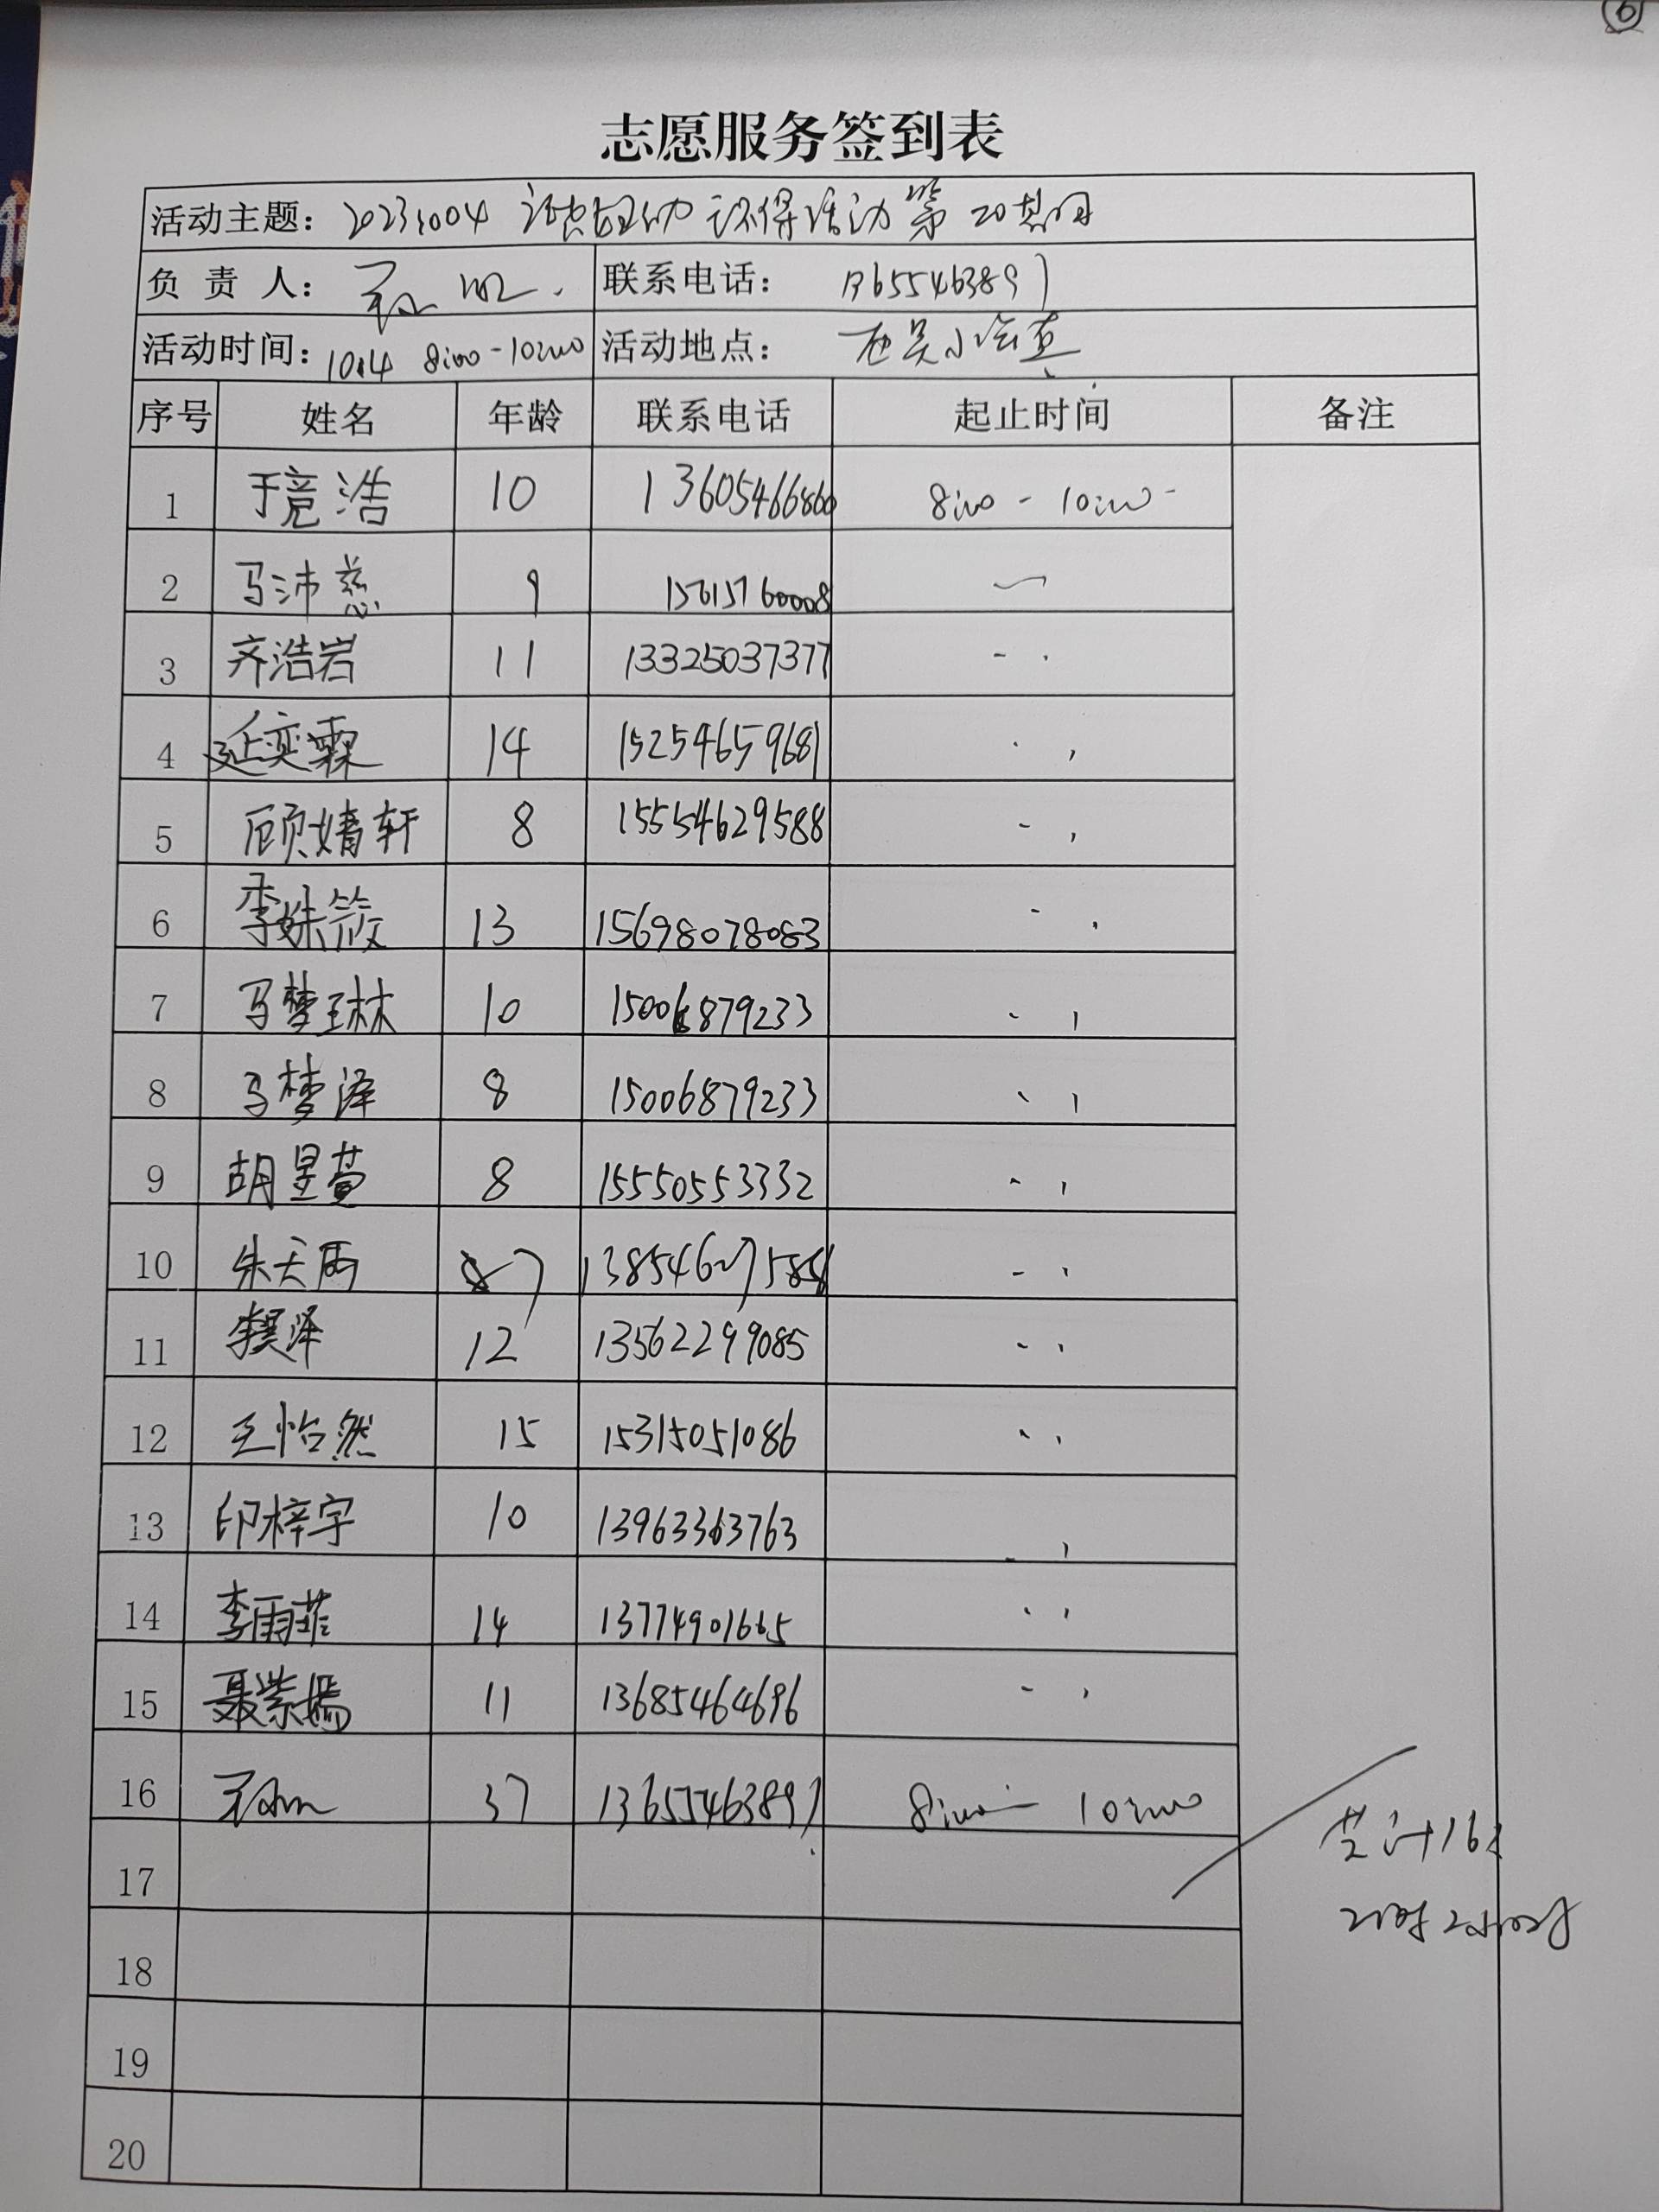 6
志愿服务签到表
活动主题: 20231004 活动 第20期
负 责 人:
联系电话: 13655463897
活动时间: 10.4 8:00-10:00
活动地点:
序号 姓名 年龄 联系电话 起止时间 备注
1 于竟浩 10 13605466860 8:00 - 10:00
2 马沛慈 9 15615760008
3 齐浩岩 11 13325037377
4 延奕霖 14 15254659681
5 顾婧轩 8 15554629588
6 李姝筱 13 15698078083
7 马梦琳 10 15006879233
8 马梦泽 8 15006879233
9 胡昱萱 8 15550553332
10 朱天 7
11 李昊泽 12 13562299085
12 王怡然 15 15315051086
13 印梓宇 10 13963363763
14 李雨菲 14 13774901665
15 聂紫嫣 11 13685464696
16 37 13655463897 8:00 - 10:00
共计16人
17
18
19
20